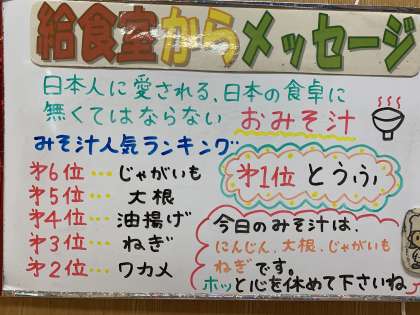 給食室からメッセージ
日本人に愛される、日本の食卓に
無くてはならない おみそ汁
みそ汁人気ランキング
第6位…じゃがいも
第5位…大根
第4位…油揚げ
第3位…ねぎ
第2位…ワカメ
第1位 とうふ
今日のみそ汁は、
にんじん、大根、じゃがいも
ねぎです。
ホッと心を休めて下さいね